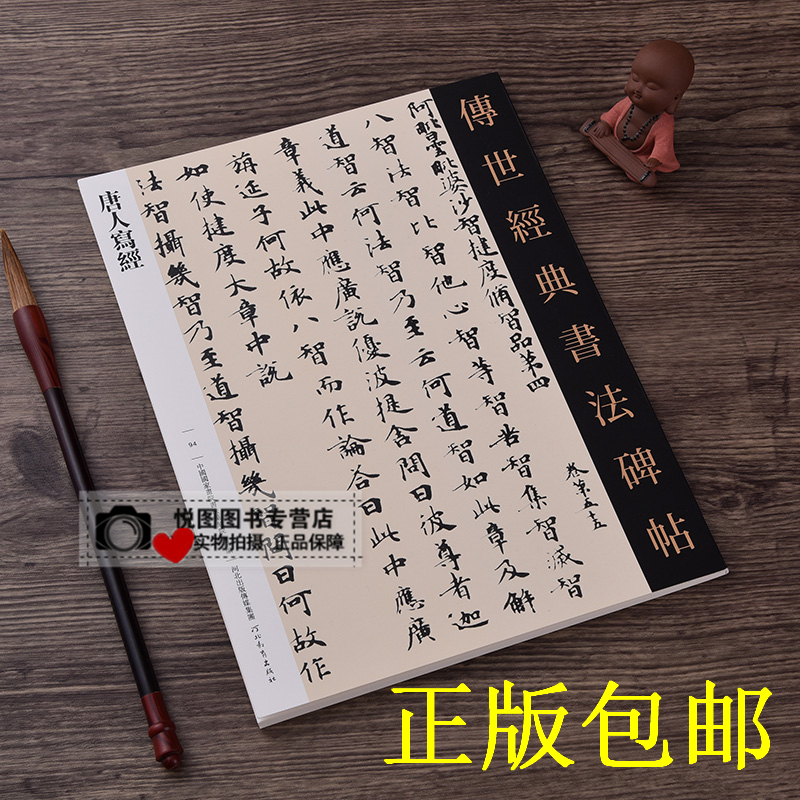 傳世經典書法碑帖
阿毗曇毗婆沙智揵度脩智品第四
卷第五十五
八智法智比智他心智等智苦智集智滅智
道智云何法智乃至云何道智如此章及解
章義此中應廣說優波提舍問曰彼尊者迦
旃延子何故依八智而作論答曰此中應廣
如使揵度大章中說
法智攝幾智乃至道智攝幾智問曰何故作
唐人寫經
94
中國國家
河北出版傳媒集團
河北教育出版社
悦图图书专营店
实物拍摄 正品保障
正版包邮